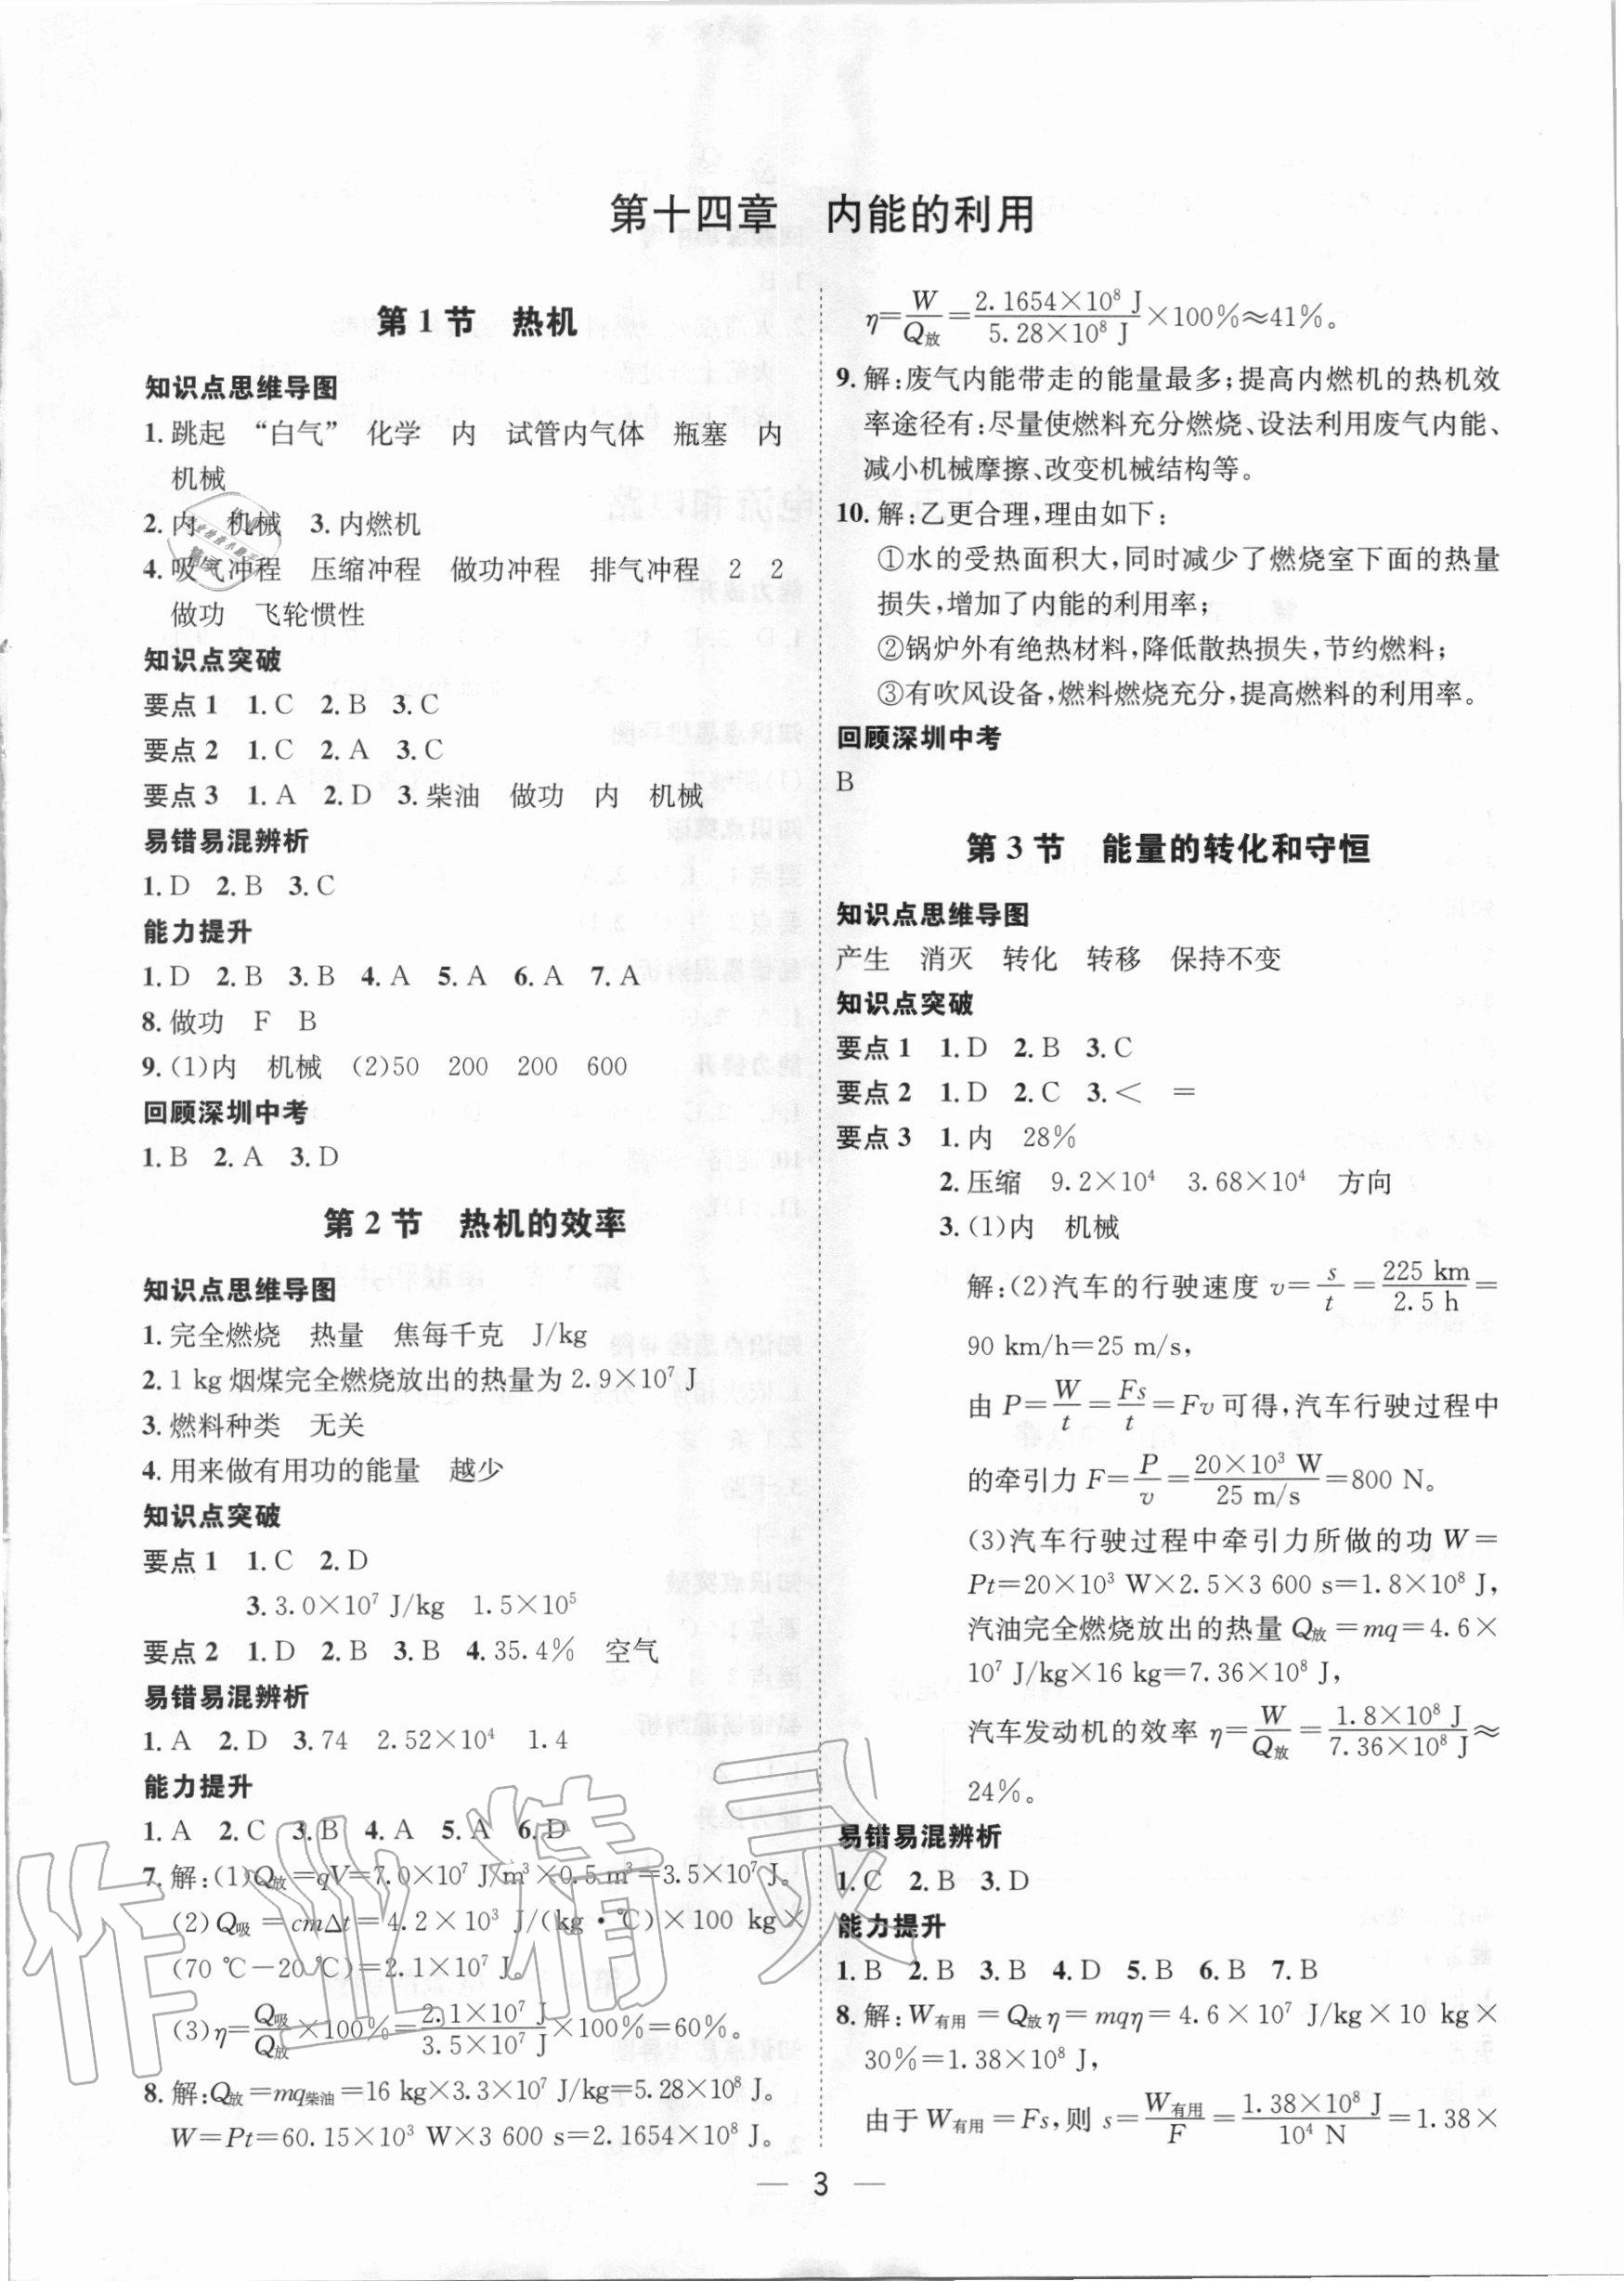 第十四章　内能的利用
第1节　热机
知识点思维导图
1.跳起　“白气”　化学　内　试管内气体　瓶塞　内
机械
2.内　机械　3.内燃机
4.吸气冲程　压缩冲程　做功冲程　排气冲程　2　2
做功　飞轮惯性
知识点突破
要点1　1.C　2.B　3.C
要点2　1.C　2.A　3.C
要点3　1.A　2.D　3.柴油　做功　内　机械
易错易混辨析
1.D　2.B　3.C
能力提升
1.D　2.B　3.B　4.A　5.A　6.A　7.A
8.做功　F　B
9.(1)内　机械　(2)50　200　200　600
回顾深圳中考
1.B　2.A　3.D
第2节　热机的效率
知识点思维导图
1.完全燃烧　热量　焦每千克　J/kg
2.1 kg烟煤完全燃烧放出的热量为2.9×10⁷ J
3.燃料种类　无关
4.用来做有用功的能量　越少
知识点突破
要点1　1.C　2.D
3.3.0×10⁷ J/kg　1.5×10⁵
要点2　1.D　2.B　3.B　4.35.4%　空气
易错易混辨析
1.A　2.D　3.74　2.52×10⁴　1.4
能力提升
1.A　2.C　3.B　4.A　5.A　6.D
7.解:(1)Q放=qV=7.0×10⁷ J/m³×0.5 m³=3.5×10⁷ J。
(2)Q吸=cmΔt=4.2×10³ J/(kg·℃)×100 kg×
(70 ℃-20 ℃)=2.1×10⁷ J。
(3)η=Q吸/Q放×100%=2.1×10⁷ J/3.5×10⁷ J×100%=60%。
8.解:Q放=mq柴油=16 kg×3.3×10⁷ J/kg=5.28×10⁸ J。
W=Pt=60.15×10³ W×3 600 s=2.1654×10⁸ J。
η=W/Q放=2.1654×10⁸ J/5.28×10⁸ J×100%≈41%。
9.解:废气内能带走的能量最多;提高内燃机的热机效
率途径有:尽量使燃料充分燃烧、设法利用废气内能、
减小机械摩擦、改变机械结构等。
10.解:乙更合理,理由如下:
①水的受热面积大,同时减少了燃烧室下面的热量
损失,增加了内能的利用率;
②锅炉外有绝热材料,降低散热损失,节约燃料;
③有吹风设备,燃料燃烧充分,提高燃料的利用率。
回顾深圳中考
B
第3节　能量的转化和守恒
知识点思维导图
产生　消灭　转化　转移　保持不变
知识点突破
要点1　1.D　2.B　3.C
要点2　1.D　2.C　3.<　=
要点3　1.内　28%
2.压缩　9.2×10⁴　3.68×10⁴　方向
3.(1)内　机械
解:(2)汽车的行驶速度v=s/t=225 km/2.5 h=
90 km/h=25 m/s,
由P=W/t=Fs/t=Fv可得,汽车行驶过程中
的牵引力F=P/v=20×10³ W/25 m/s=800 N。
(3)汽车行驶过程中牵引力所做的功W=
Pt=20×10³ W×2.5×3 600 s=1.8×10⁸ J,
汽油完全燃烧放出的热量Q放=mq=4.6×
10⁷ J/kg×16 kg=7.36×10⁸ J,
汽车发动机的效率η=W/Q放=1.8×10⁸ J/7.36×10⁸ J≈
24%。
易错易混辨析
1.C　2.B　3.D
能力提升
1.B　2.B　3.B　4.D　5.B　6.B　7.B
8.解:W有用=Q放η=mqη=4.6×10⁷ J/kg×10 kg×
30%=1.38×10⁸ J,
由于W有用=Fs,则s=W有用/F=1.38×10⁸ J/10⁴ N=1.38×
— 3 —
作业精灵